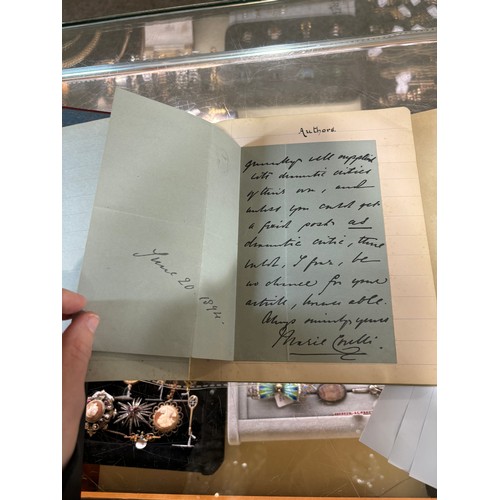 Authors.
generally well supplied
with dramatic critics
of their own, and
unless you could get
a fixed post as
dramatic critic, there
would, I fear, be
no chance for your
article, however able.
Always sincerely yours
Marie Corelli.
June 20
1894.